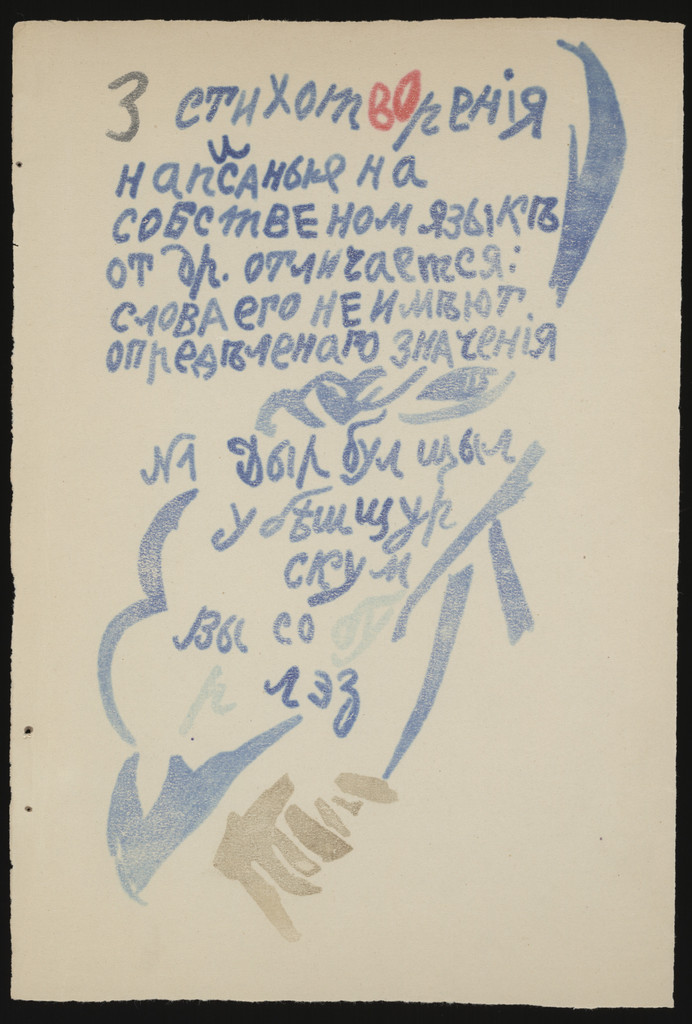 3 стихотворенія
напсанные на
собственом языкѣ
от др. отличается:
слова его не имѣют
опредѣленаго значенія
№1 Дыр бул щыл
убѣшщур
скум
вы со бу
р лэз